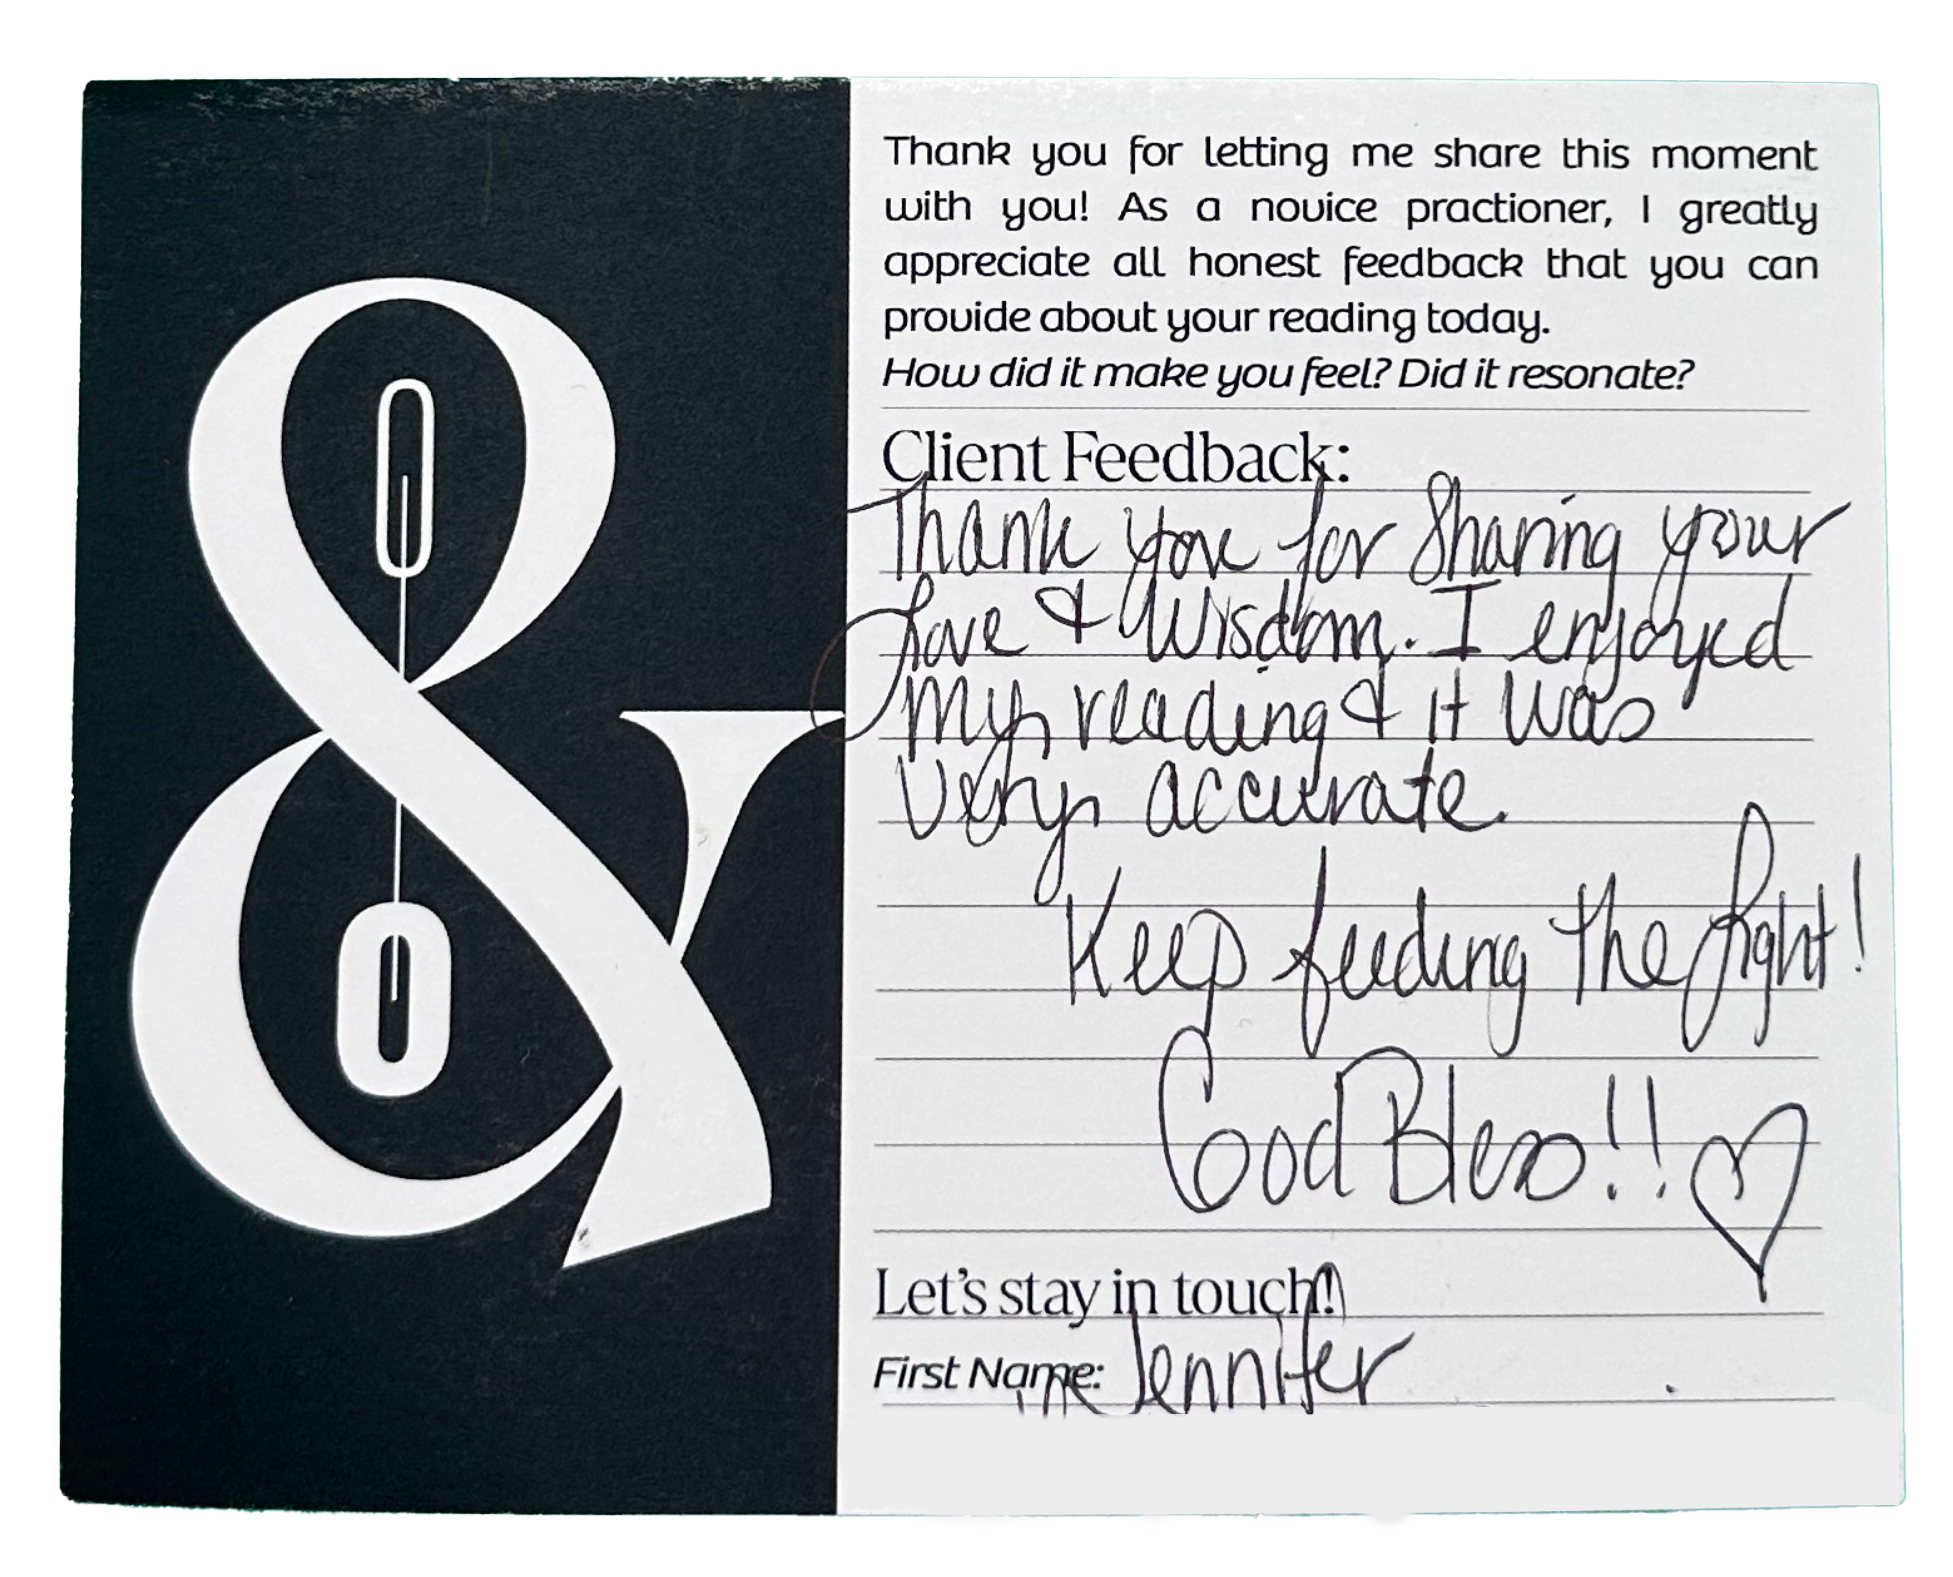 &
Thank you for letting me share this moment
with you! As a novice practioner, I greatly
appreciate all honest feedback that you can
provide about your reading today.
How did it make you feel? Did it resonate?
Client Feedback:
Thank you for Sharing your
Love & Wisdom. I enjoyed
my reading & it was
very accurate.
Keep feeding the light!
God Bless!!
Let's stay in touch!
First Name: Jennifer